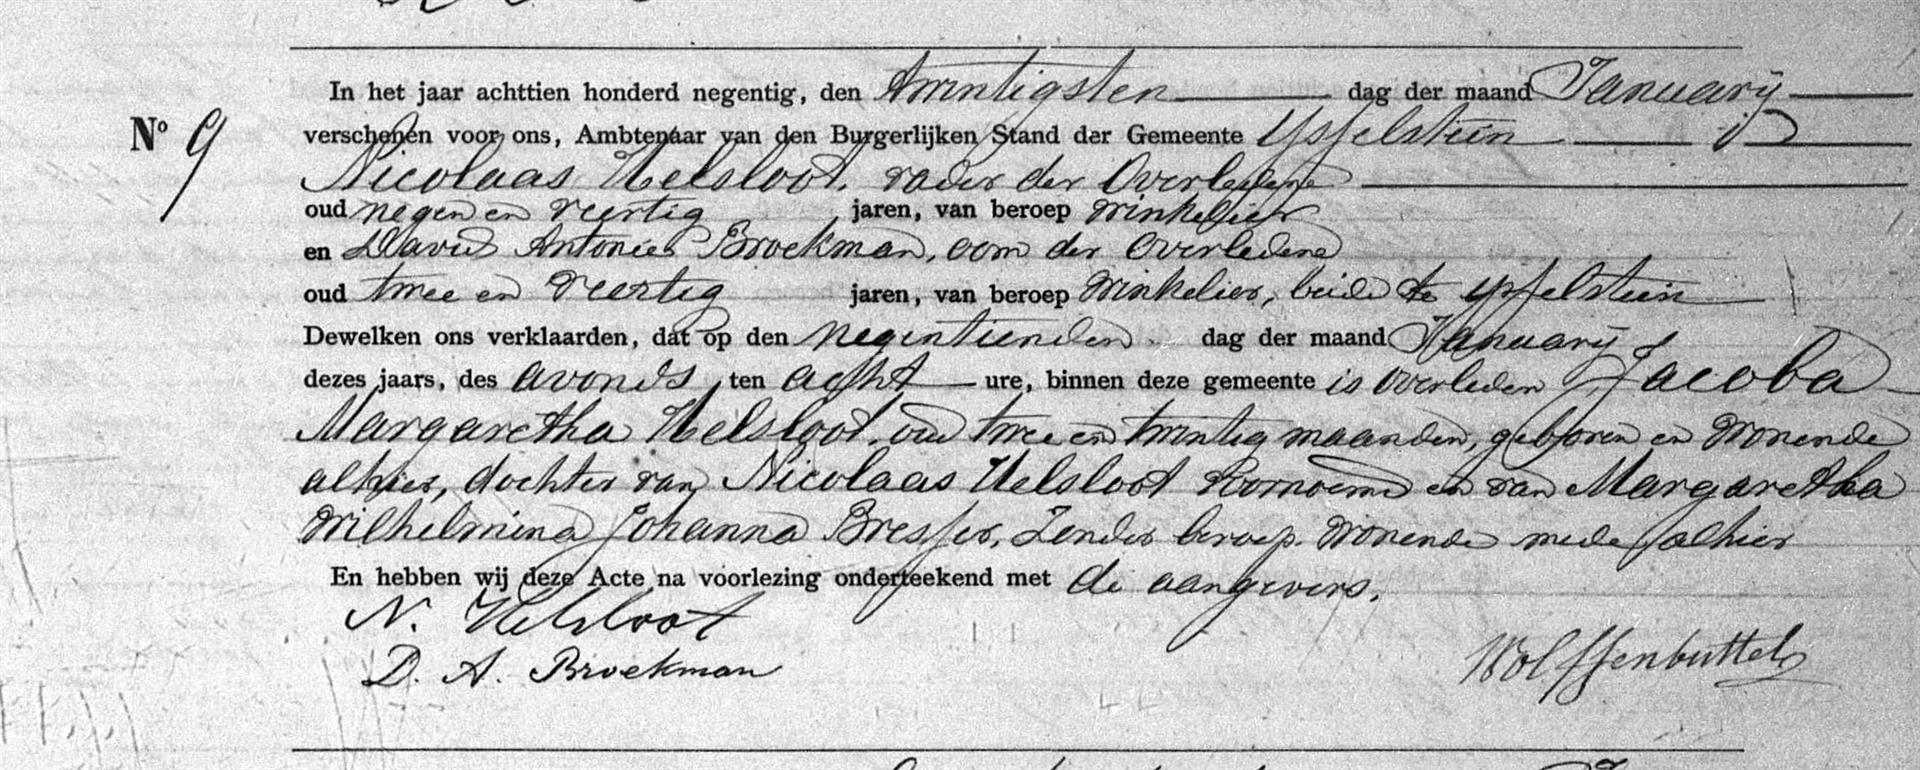 In het jaar achttien honderd negentig, den twintigsten dag der maand Januarij
No 9 verschenen voor ons, Ambtenaar van den Burgerlijken Stand der Gemeente IJsselstein
Nicolaas Helsloot, vader der Overledene
oud negen en veertig jaren, van beroep winkelier
en David Antonie Broekman, oom der Overledene
oud twee en veertig jaren, van beroep winkelier, beide te IJsselstein
Dewelken ons verklaarden, dat op den negentienden dag der maand Januarij
dezes jaars, des avonds ten acht ure, binnen deze gemeente is overleden Jacoba
Margaretha Helsloot, oud twee en twintig maanden, geboren en wonende
alhier, dochter van Nicolaas Helsloot voornoemd en van Margaretha
Wilhelmina Johanna Bresser, Zonder beroep wonende mede alhier
En hebben wij deze Acte na voorlezing onderteekend met de aangevers.
N. Helsloot
D. A. Broekman
Wolffenbuttel